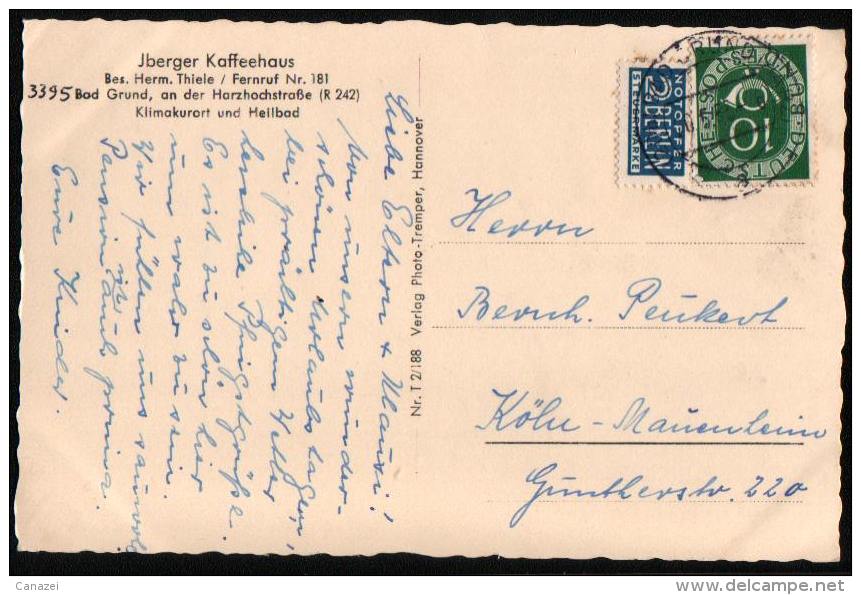 Jberger Kaffeehaus
Bes. Herm. Thiele / Fernruf Nr. 181
3395 Bad Grund, an der Harzhochstraße (R 242)
Klimakurort und Heilbad
Liebe Eltern + Klausi!
Von unsern wunder-
schönen Urlaubstagen,
bei prächtigem Wetter
herzliche Pfingstgrüße.
Es ist zu schön hier
um wahr zu sein.
Wir fühlen uns sauwohl
Pension ist auch prima.
Eure Kinder.
Nr. T 2/188 Verlag Photo-Tremper, Hannover
NOTOPFER
2 BERLIN
STEUERMARKE
DEUTSCHE BUNDESPOST
10
Herrn
Bernh. Peukert
Köln-Mauenheim
Guntherstr. 220
Canazei
www.delcampe.net